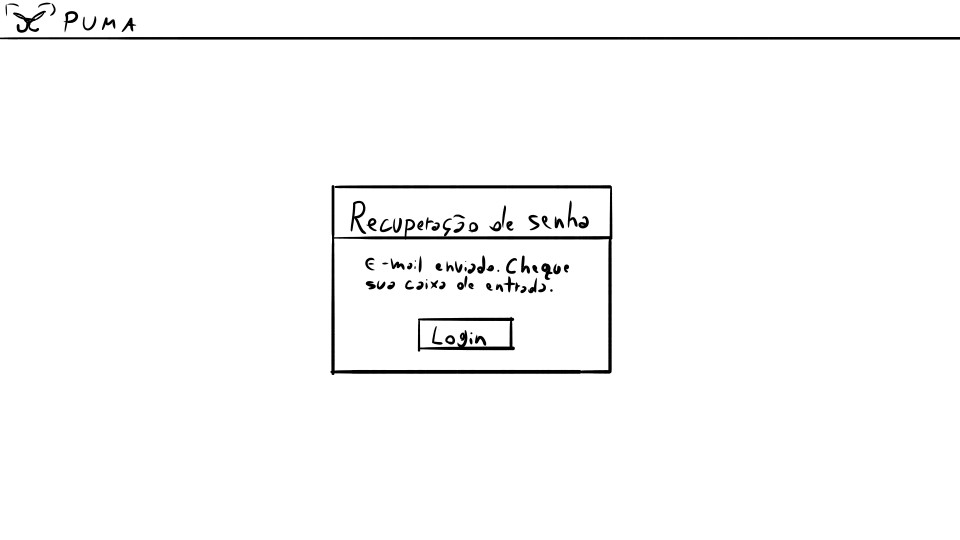 PUMA
Recuperação de senha
E-mail enviado. Cheque
sua caixa de entrada.
Login